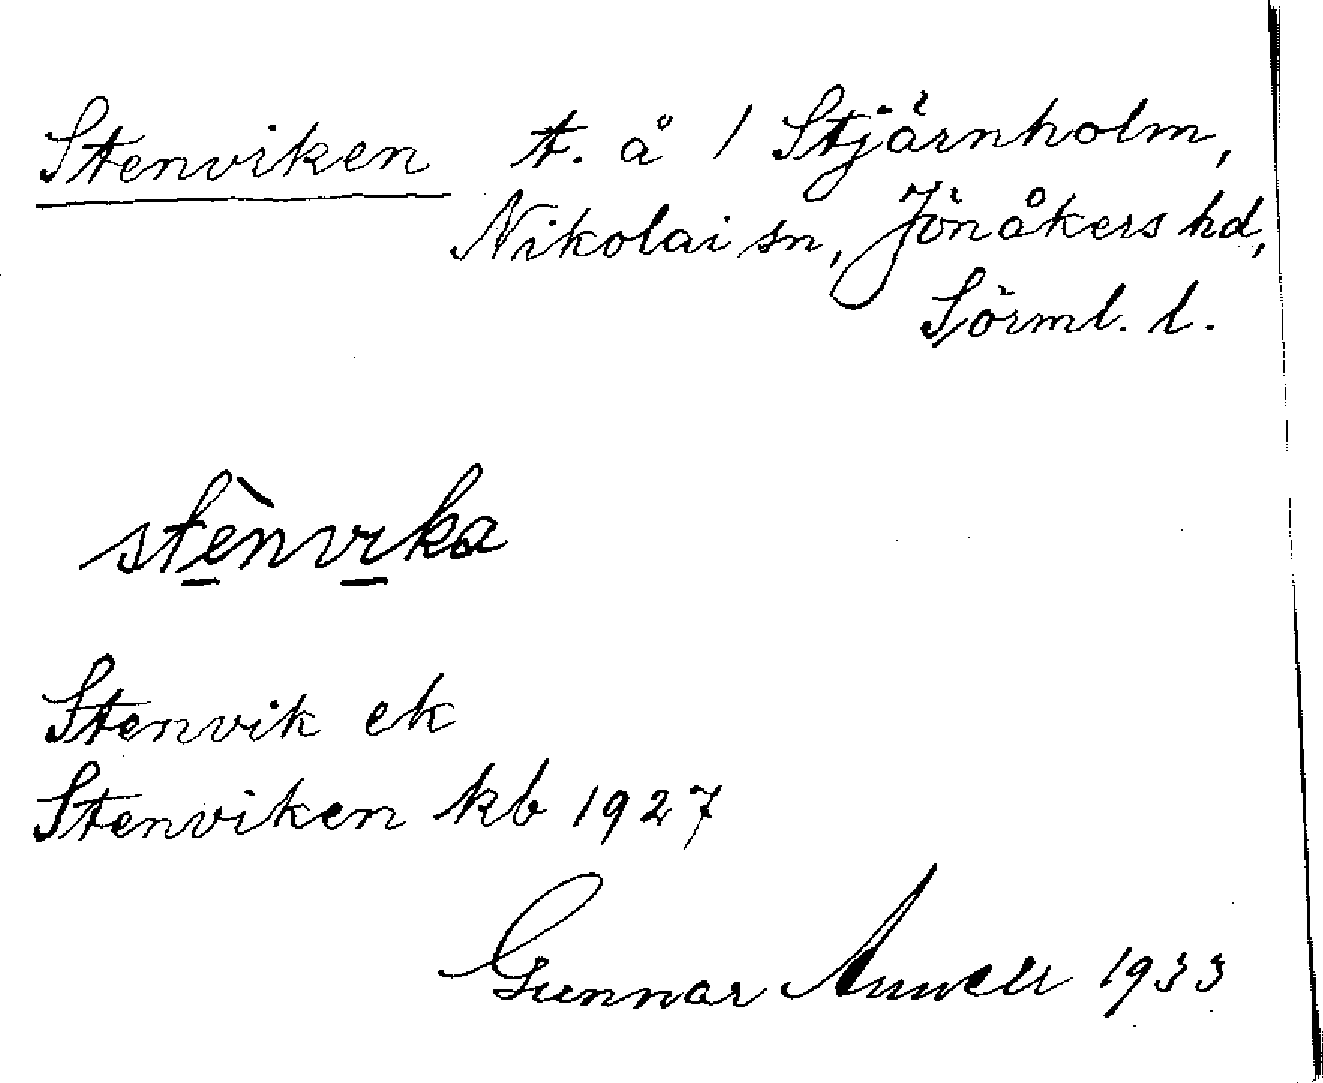 Stenviken t. å / Stjärnholm,
Nikolai sn, Jönåkers hd,
Sörml. l.
stènvika
Stenvik ek
Stenviken kb 1927
Gunnar 1933